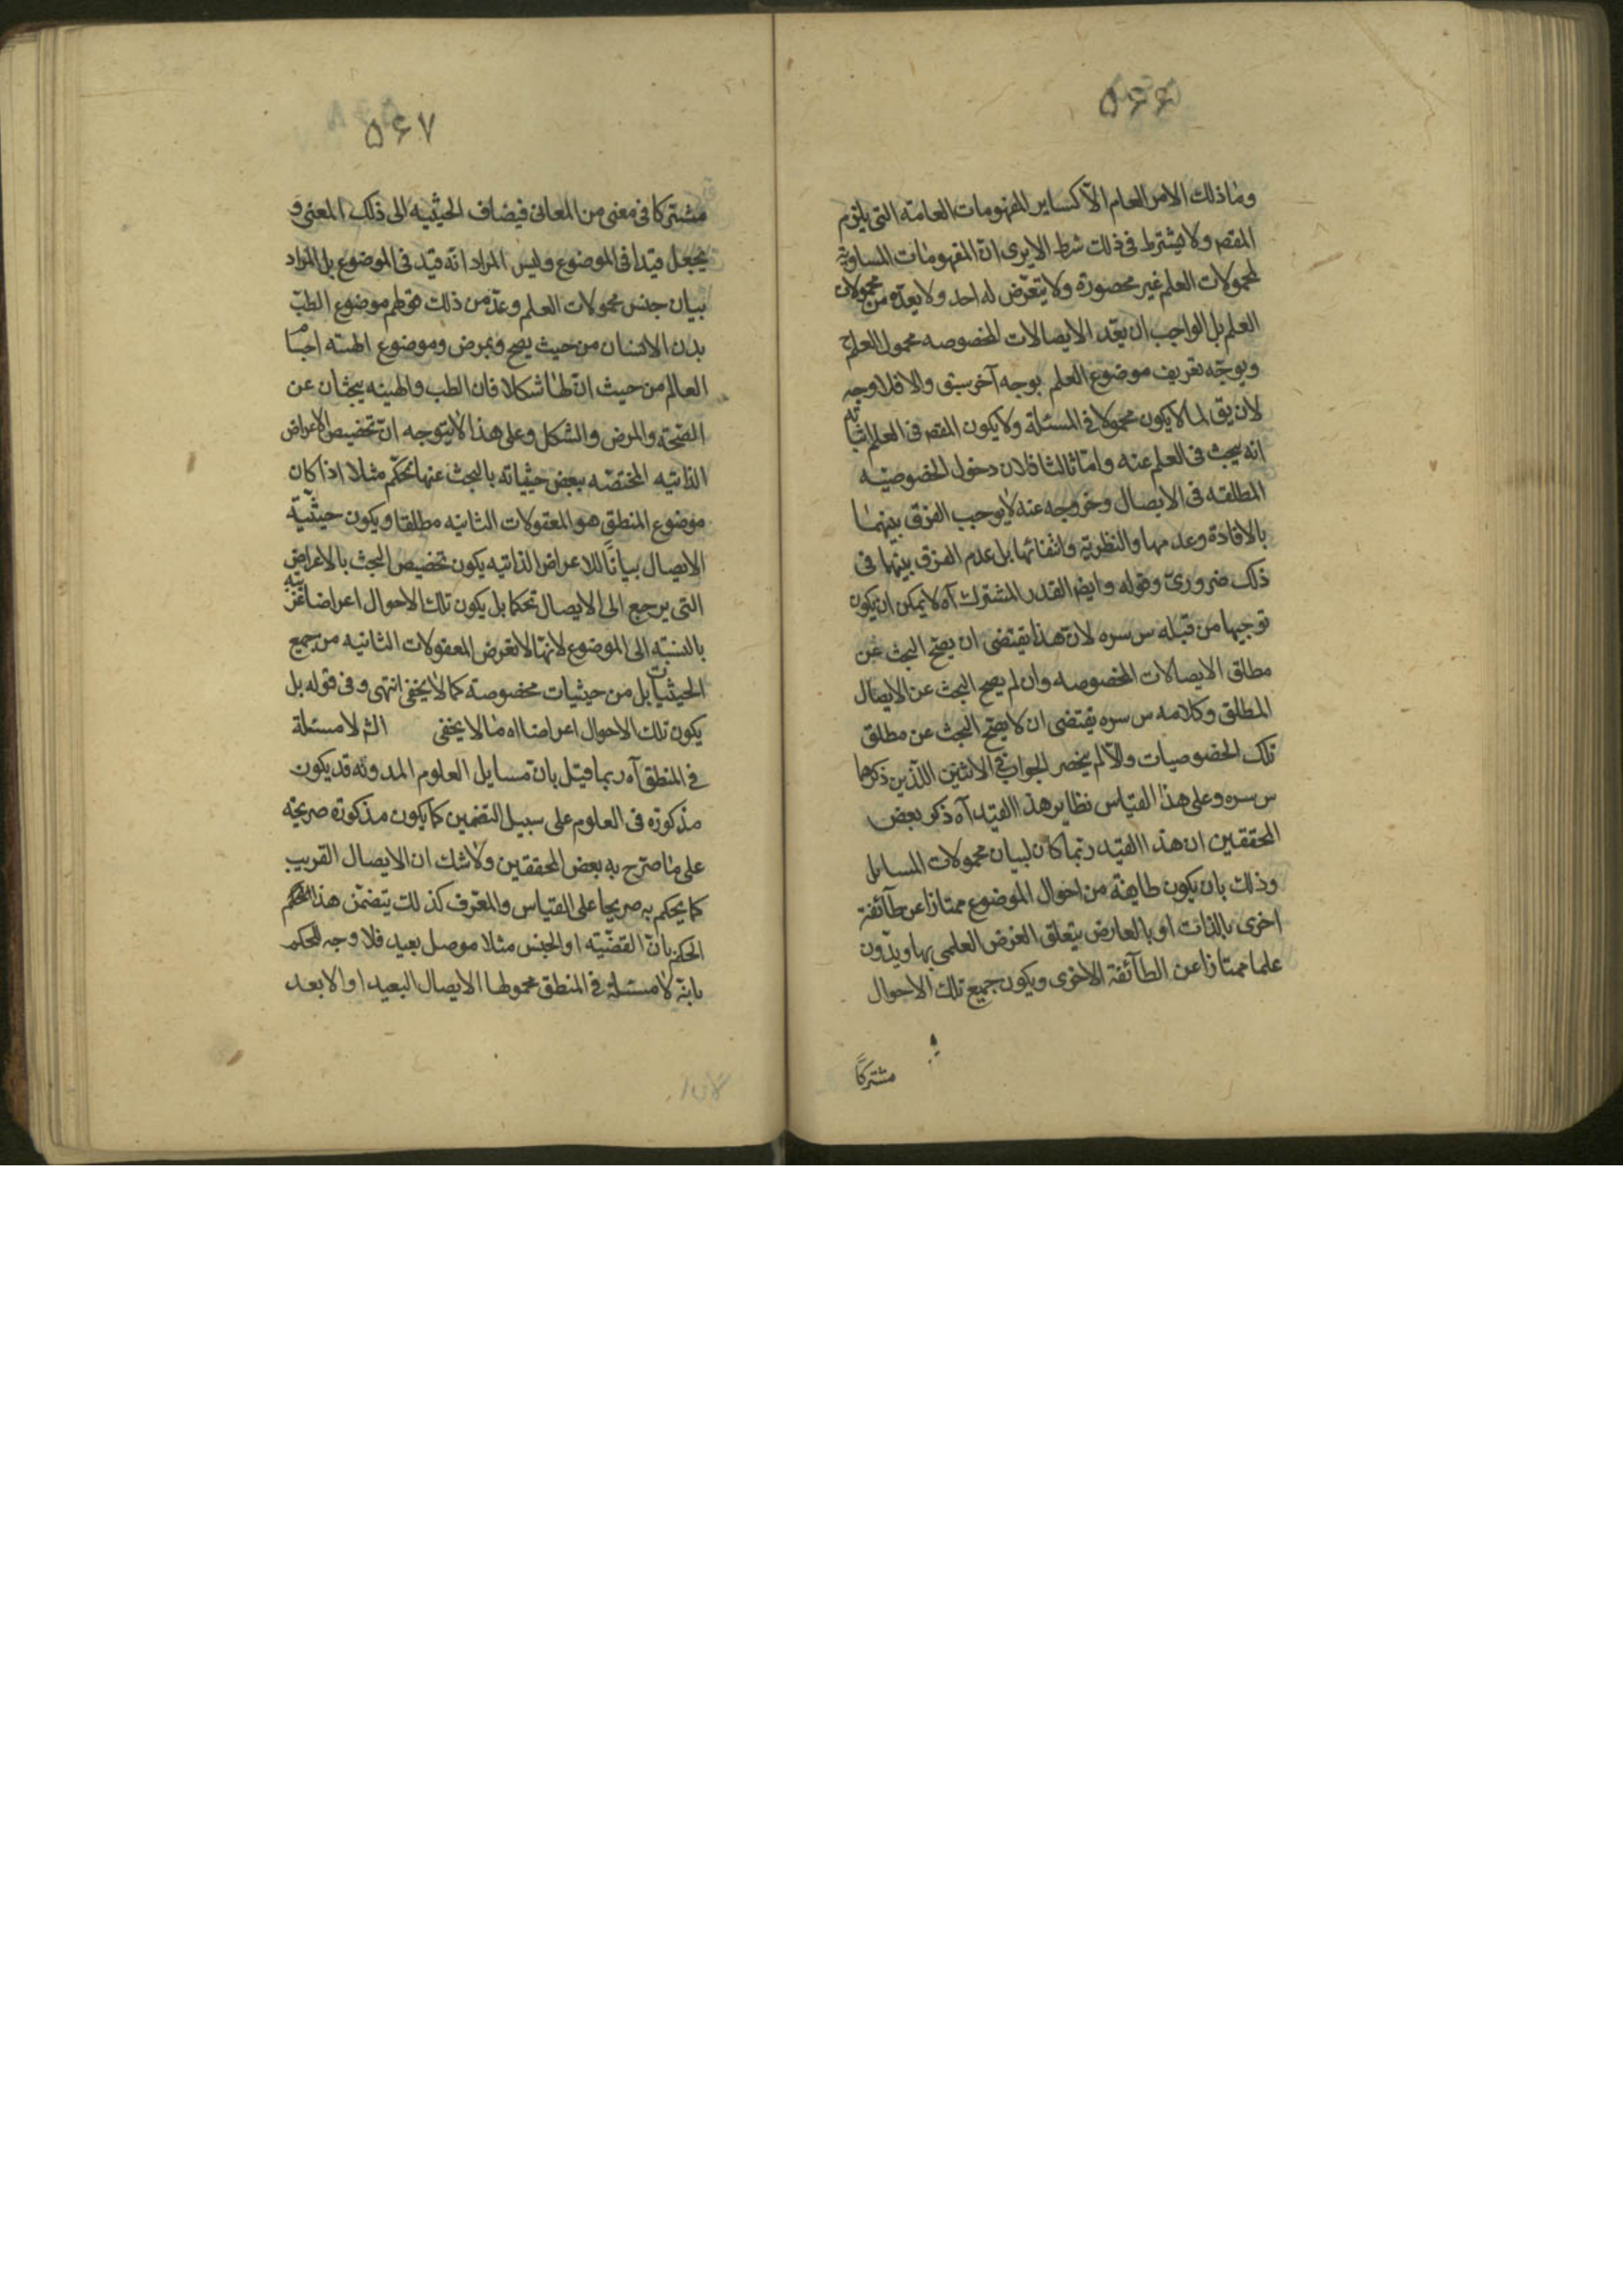 ۵۶۶
وما ذلك الامر العام الا كساير المفهومات العامة التى يلزم
المقص ولا يشترط فى ذلك شرط الايرى ان المفهومات المساوية
لمحمولات العلم غير محصورة ولا يتعرض له احد ولا يعده من محمولات
العلم بل الواجب ان يعد الايصالات المخصوصه محمول العلم
ويوجه تعريف موضوع العلم بوجه آخر سبق والا فلا وجه
لان يق لما لا يكون محمولا فى المسئلة ولا يكون المقص فى العلم اثباته
انه يبحث فى العلم عنه واما ثالثا فلان دخول الخصوصيه
المطلقه فى الايصال وخروجه عنه لا يوجب الفرق بينهما
بالافادة وعدمها والنظرية وانتفائها بل عدم الفرق بينهما فى
ذلك ضرورى وقوله وايض القدر المشترك آه لا يمكن ان يكون
توجيها من قبله س سره لان هذا يقتضى ان يصح البحث عن
مطلق الايصالات المخصوصه وان لم يصح البحث عن الايصال
المطلق وكلامه س سره يقتضى ان لا يصح البحث عن مطلق
تلك الخصوصيات والا لم يخصر الجواب فى الاثنين اللذين ذكرهما
س سره وعلى هذا القياس نظاير هذا القيد آه ذكر بعض
المحققين ان هذا القيد ربما كان لبيان محمولات المسايل
وذلك بان يكون طايفة من احوال الموضوع ممتازا عن طآئفة
اخرى بالذات او بالعارض يتعلق الغرض العلمى بها ويدون
علما ممتازا عن الطآئفة الاخرى ويكون جميع تلك الاحوال
مشتركًا
۵۶۷
مشتركا فى معنى من المعانى فيضاف الحيثيه الى ذلك المعنى و
يجعل قيدا فى الموضوع وليس المراد انه قيد فى الموضوع بل المراد
بيان جنس محمولات العلم وعد من ذلك قولهم موضوع الطب
بدن الانسان من حيث يصح ويمرض وموضوع الهيئه اجسام
العالم من حيث ان لها شكلا فان الطب والهيئه يبحثان عن
الصحة والمرض والشكل وعلى هذا لا يتوجه ان تخصيص الاعراض
الذاتيه المختصه ببعض حيثياته بالبحث عنها تحكم مثلا اذا كان
موضوع المنطق هو المعقولات الثانيه مطلقا ويكون حيثية
الايصال بيانًا للاعراض الذاتيه يكون تخصيص البحث بالاعراض
التى يرجع الى الايصال تحكما بل يكون تلك الاحوال اعراضا غريبه
بالنسبة الى الموضوع لانها لا تعرض المعقولات الثانيه من جميع
الحيثيات بل من حيثيات مخصوصة كما لا يخفى انتهى وفى قوله بل
يكون تلك الاحوال اعراضا اه ما لا يخفى الش لا مسئلة
فى المنطق آه ربما قيل بان مسايل العلوم المدونه قد يكون
مذكورة فى العلوم على سبيل التضمين كما يكون مذكورة صريحة
على ما صرح به بعض المحققين ولا شك ان الايصال القريب
كما يحكم به صريحا على القياس والمعرف كذلك يتضمن هذا الحكم
الحكم بان القضية او الجنس مثلا موصل بعيد فلا وجه للحكم
بانه لا مسئلة فى المنطق محمولها الايصال البعيد او الابعد